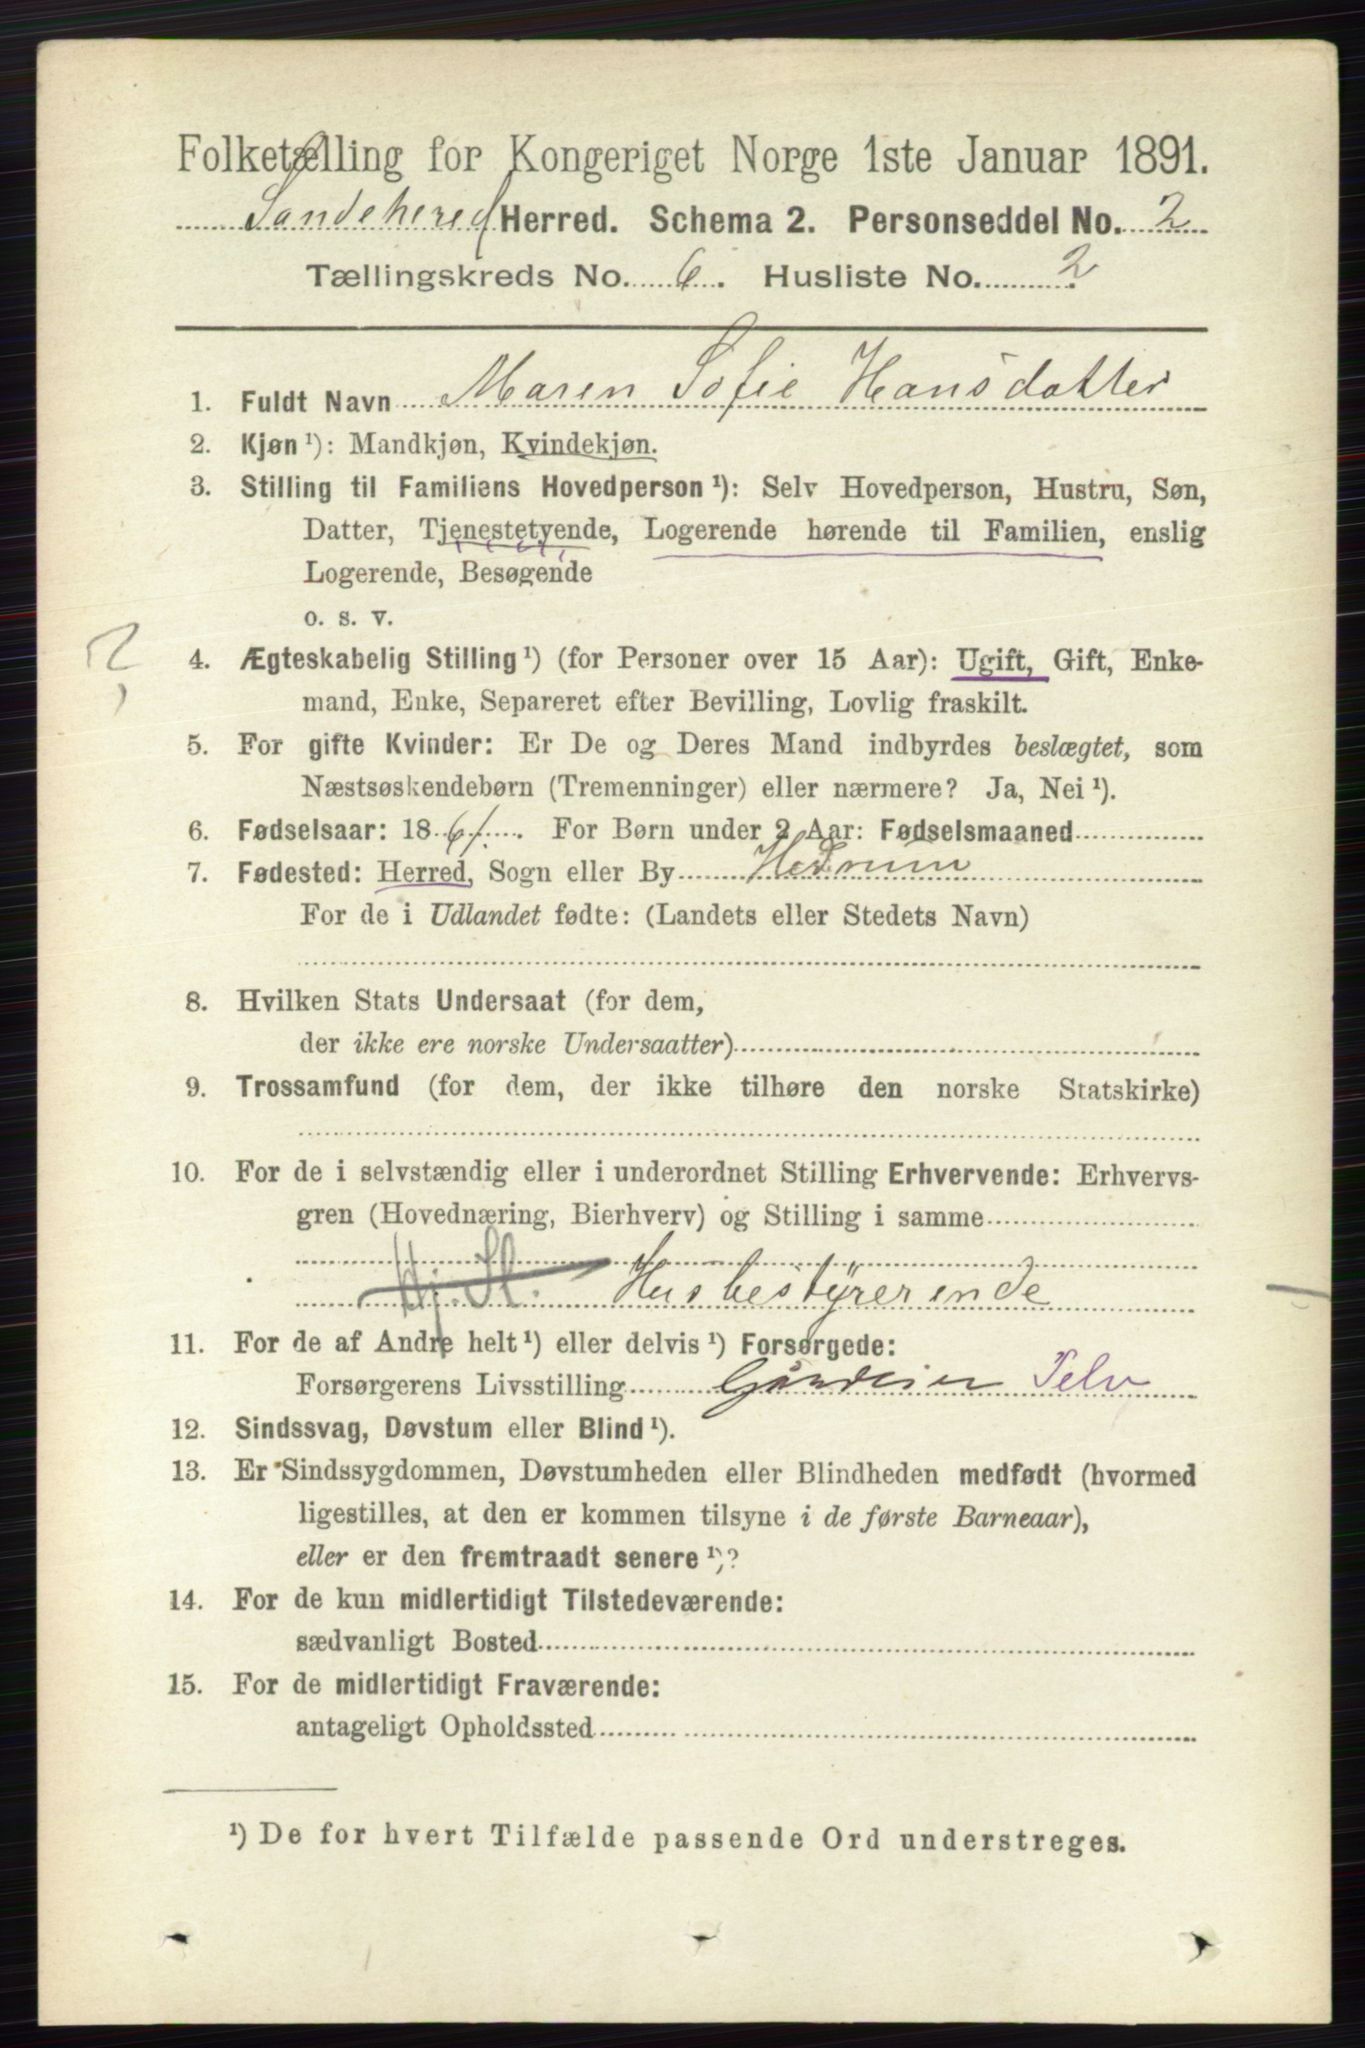 Folketælling for Kongeriget Norge 1ste Januar 1891.
Sandeherred Herred. Schema 2. Personseddel No. 2
Tællingskreds No. 6. Husliste No. 2
1. Fuldt Navn Maren Sofie Hansdatter
2. Kjøn ¹): Mandkjøn, Kvindekjøn.
3. Stilling til Familiens Hovedperson ¹): Selv Hovedperson, Hustru, Søn,
Datter, Tjenestetyende, Logerende hørende til Familien, enslig
Logerende, Besøgende
o. s. v.
?
4. Ægteskabelig Stilling ¹) (for Personer over 15 Aar): Ugift, Gift, Enke-
mand, Enke, Separeret efter Bevilling, Lovlig fraskilt.
5. For gifte Kvinder: Er De og Deres Mand indbyrdes beslægtet, som
Næstsøskendebørn (Tremenninger) eller nærmere? Ja, Nei ¹).
6. Fødselsaar: 1861. For Børn under 2 Aar: Fødselsmaaned
7. Fødested: Herred, Sogn eller By Hedrum
For de i Udlandet fødte: (Landets eller Stedets Navn)
8. Hvilken Stats Undersaat (for dem,
der ikke ere norske Undersaatter)
9. Trossamfund (for dem, der ikke tilhøre den norske Statskirke)
10. For de i selvstændig eller i underordnet Stilling Erhvervende: Erhvervs-
gren (Hovednæring, Bierhverv) og Stilling i samme
Hj. St. Husbestyrerende
11. For de af Andre helt ¹) eller delvis ¹) Forsørgede:
Forsørgerens Livsstilling Selv
12. Sindssvag, Døvstum eller Blind ¹).
13. Er Sindssygdommen, Døvstumheden eller Blindheden medfødt (hvormed
ligestilles, at den er kommen tilsyne i de første Barneaar),
eller er den fremtraadt senere ¹)?
14. For de kun midlertidigt Tilstedeværende:
sædvanligt Bosted
15. For de midlertidigt Fraværende:
antageligt Opholdssted
¹) De for hvert Tilfælde passende Ord understreges.